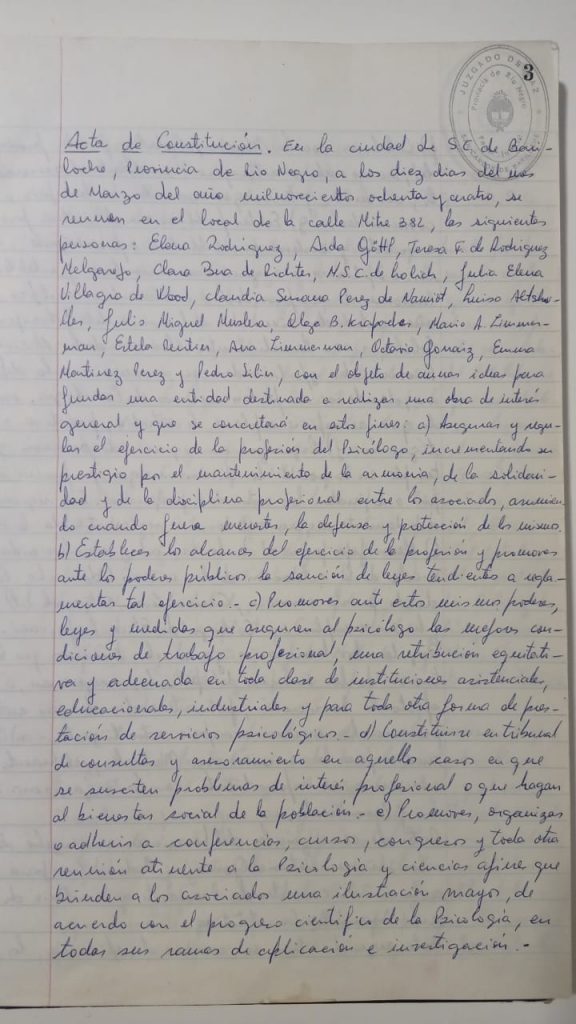 3
JUZGADO DE PAZ
Provincia de Río Negro
Acta de Constitución. En la ciudad de S.C. de Bari-
loche, Provincia de Rio Negro, a los diez dias del mes
de Marzo del año milnovecientos ochenta y cuatro, se
reunen en el local de la calle Mitre 382, las siguientes
personas: Elena Rodriguez, Aida Göttl, Teresa F. de Rodriguez
Melgarejo, Clara Bua de Richter, N.S.C. de Lolich, Julia Elena
Villagra de Wood, Claudia Susana Perez de Namiot, Luisa Altshu-
ller, Julio Miguel Muslera, Olga B. Krapodas, Mario A. Zimmer-
man, Estela Rentier, Ana Zimmerman, Octavio Gomariz, Emma
Martinez Perez y Pedro Silin, con el objeto de aunar ideas para
fundar una entidad destinada a realizar una obra de interés
general y que se concretará en estos fines: a) Asegurar y regu-
lar el ejercicio de la profesión del Psicólogo, incrementando su
prestigio por el mantenimiento de la armonía, de la solidari-
dad y de la disciplina profesional entre los asociados, asumien-
do cuando fuera menester, la defensa y protección de los mismos.
b) Establecer los alcances del ejercicio de la profesión y promover
ante los poderes públicos la sanción de leyes tendientes a regla-
mentar tal ejercicio.- c) Promover ante estos mismos poderes,
leyes y medidas que aseguren al psicólogo las mejores con-
diciones de trabajo profesional, una retribución equitati-
va y adecuada en toda clase de instituciones asistenciales,
educacionales, industriales y para toda otra forma de pres-
tación de servicios psicológicos.- d) Constituirse en tribunal
de consultas y asesoramiento en aquellos casos en que
se susciten problemas de interés profesional o que hagan
al bienestar social de la población.- e) Promover, organizar
o adherir a conferencias, cursos, congresos y toda otra
reunión atinente a la Psicología y ciencias afines que
brinden a los asociados una ilustración mayor, de
acuerdo con el progreso científico de la Psicología, en
todas sus ramas de aplicación e investigación.-